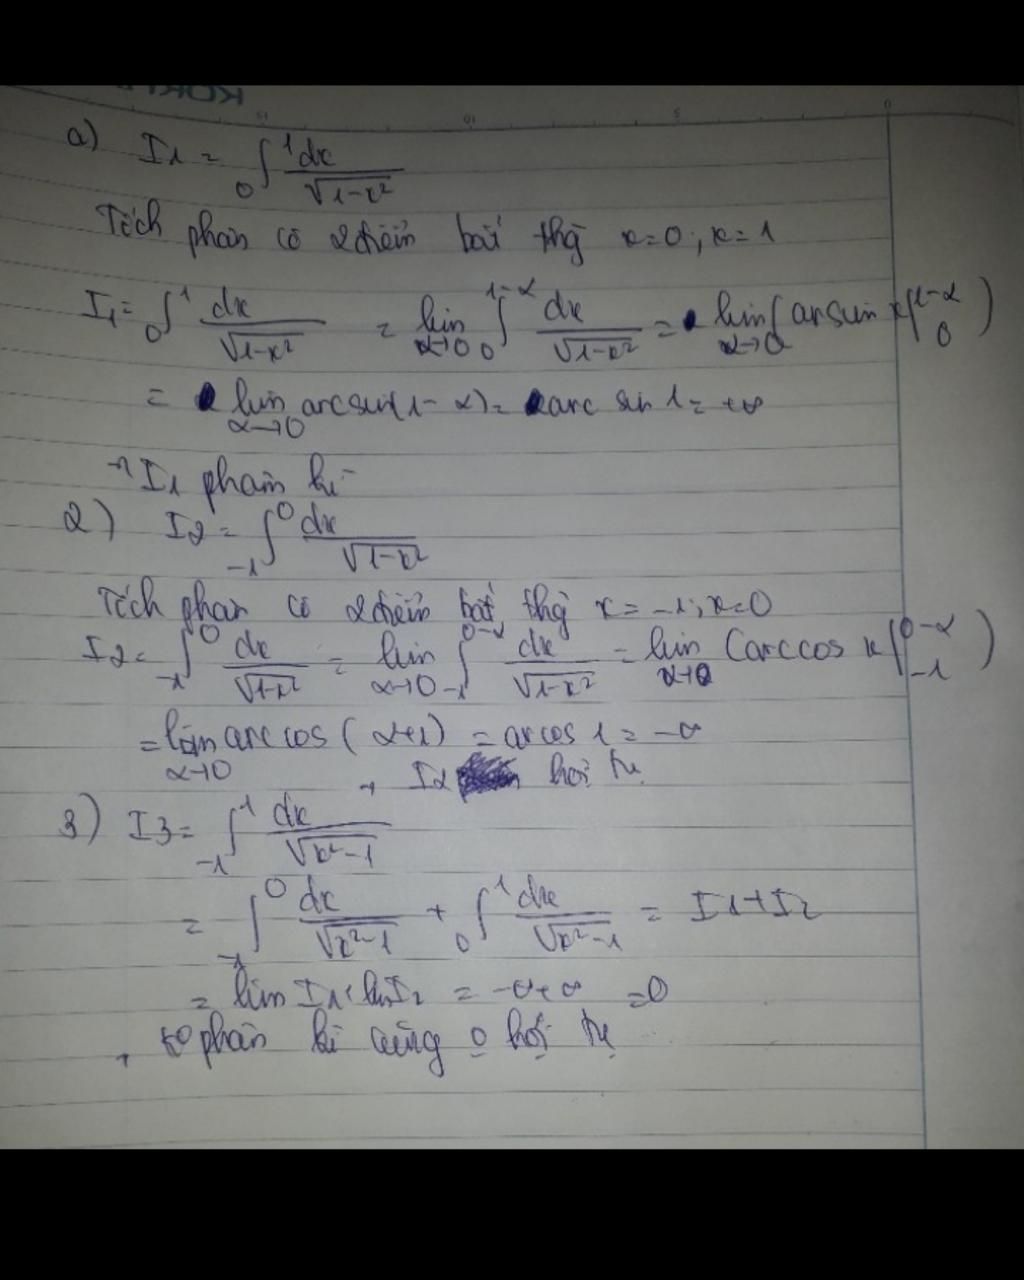 a) I1 = ∫_0^1 dx/√(1-x²)
Tích phân có 2 điểm bất thg x=0; x=1
I1 = ∫_0^1 dx/√(1-x²) = lim_{α→0} ∫_0^{1-α} dx/√(1-x²) = lim_{α→0} (arsin x|_0^{1-α})
= lim_{α→0} arcsin(1-α) = arc sin 1 = +∞
→ I1 phân kì
2) I2 = ∫_{-1}^0 dx/√(1-x²)
Tích phân có 2 điểm bất thg x=-1; x=0
I2 = ∫_{-1}^0 dx/√(1-x²) = lim_{α→0} ∫_{-1}^{0-α} dx/√(1-x²) = lim_{α→0} (arccos x|_{-1}^{0-α})
= lim_{α→0} arc cos (α+1) = arcos 1 = -∞
→ I2 hội tụ
3) I3 = ∫_{-1}^1 dx/√(x²-1)
= ∫_{-1}^0 dx/√(x²-1) + ∫_0^1 dx/√(x²-1) = I1+I2
= lim I1 + lim I2 = -∞+∞ =0
→ phân kì cũng o hội tụ